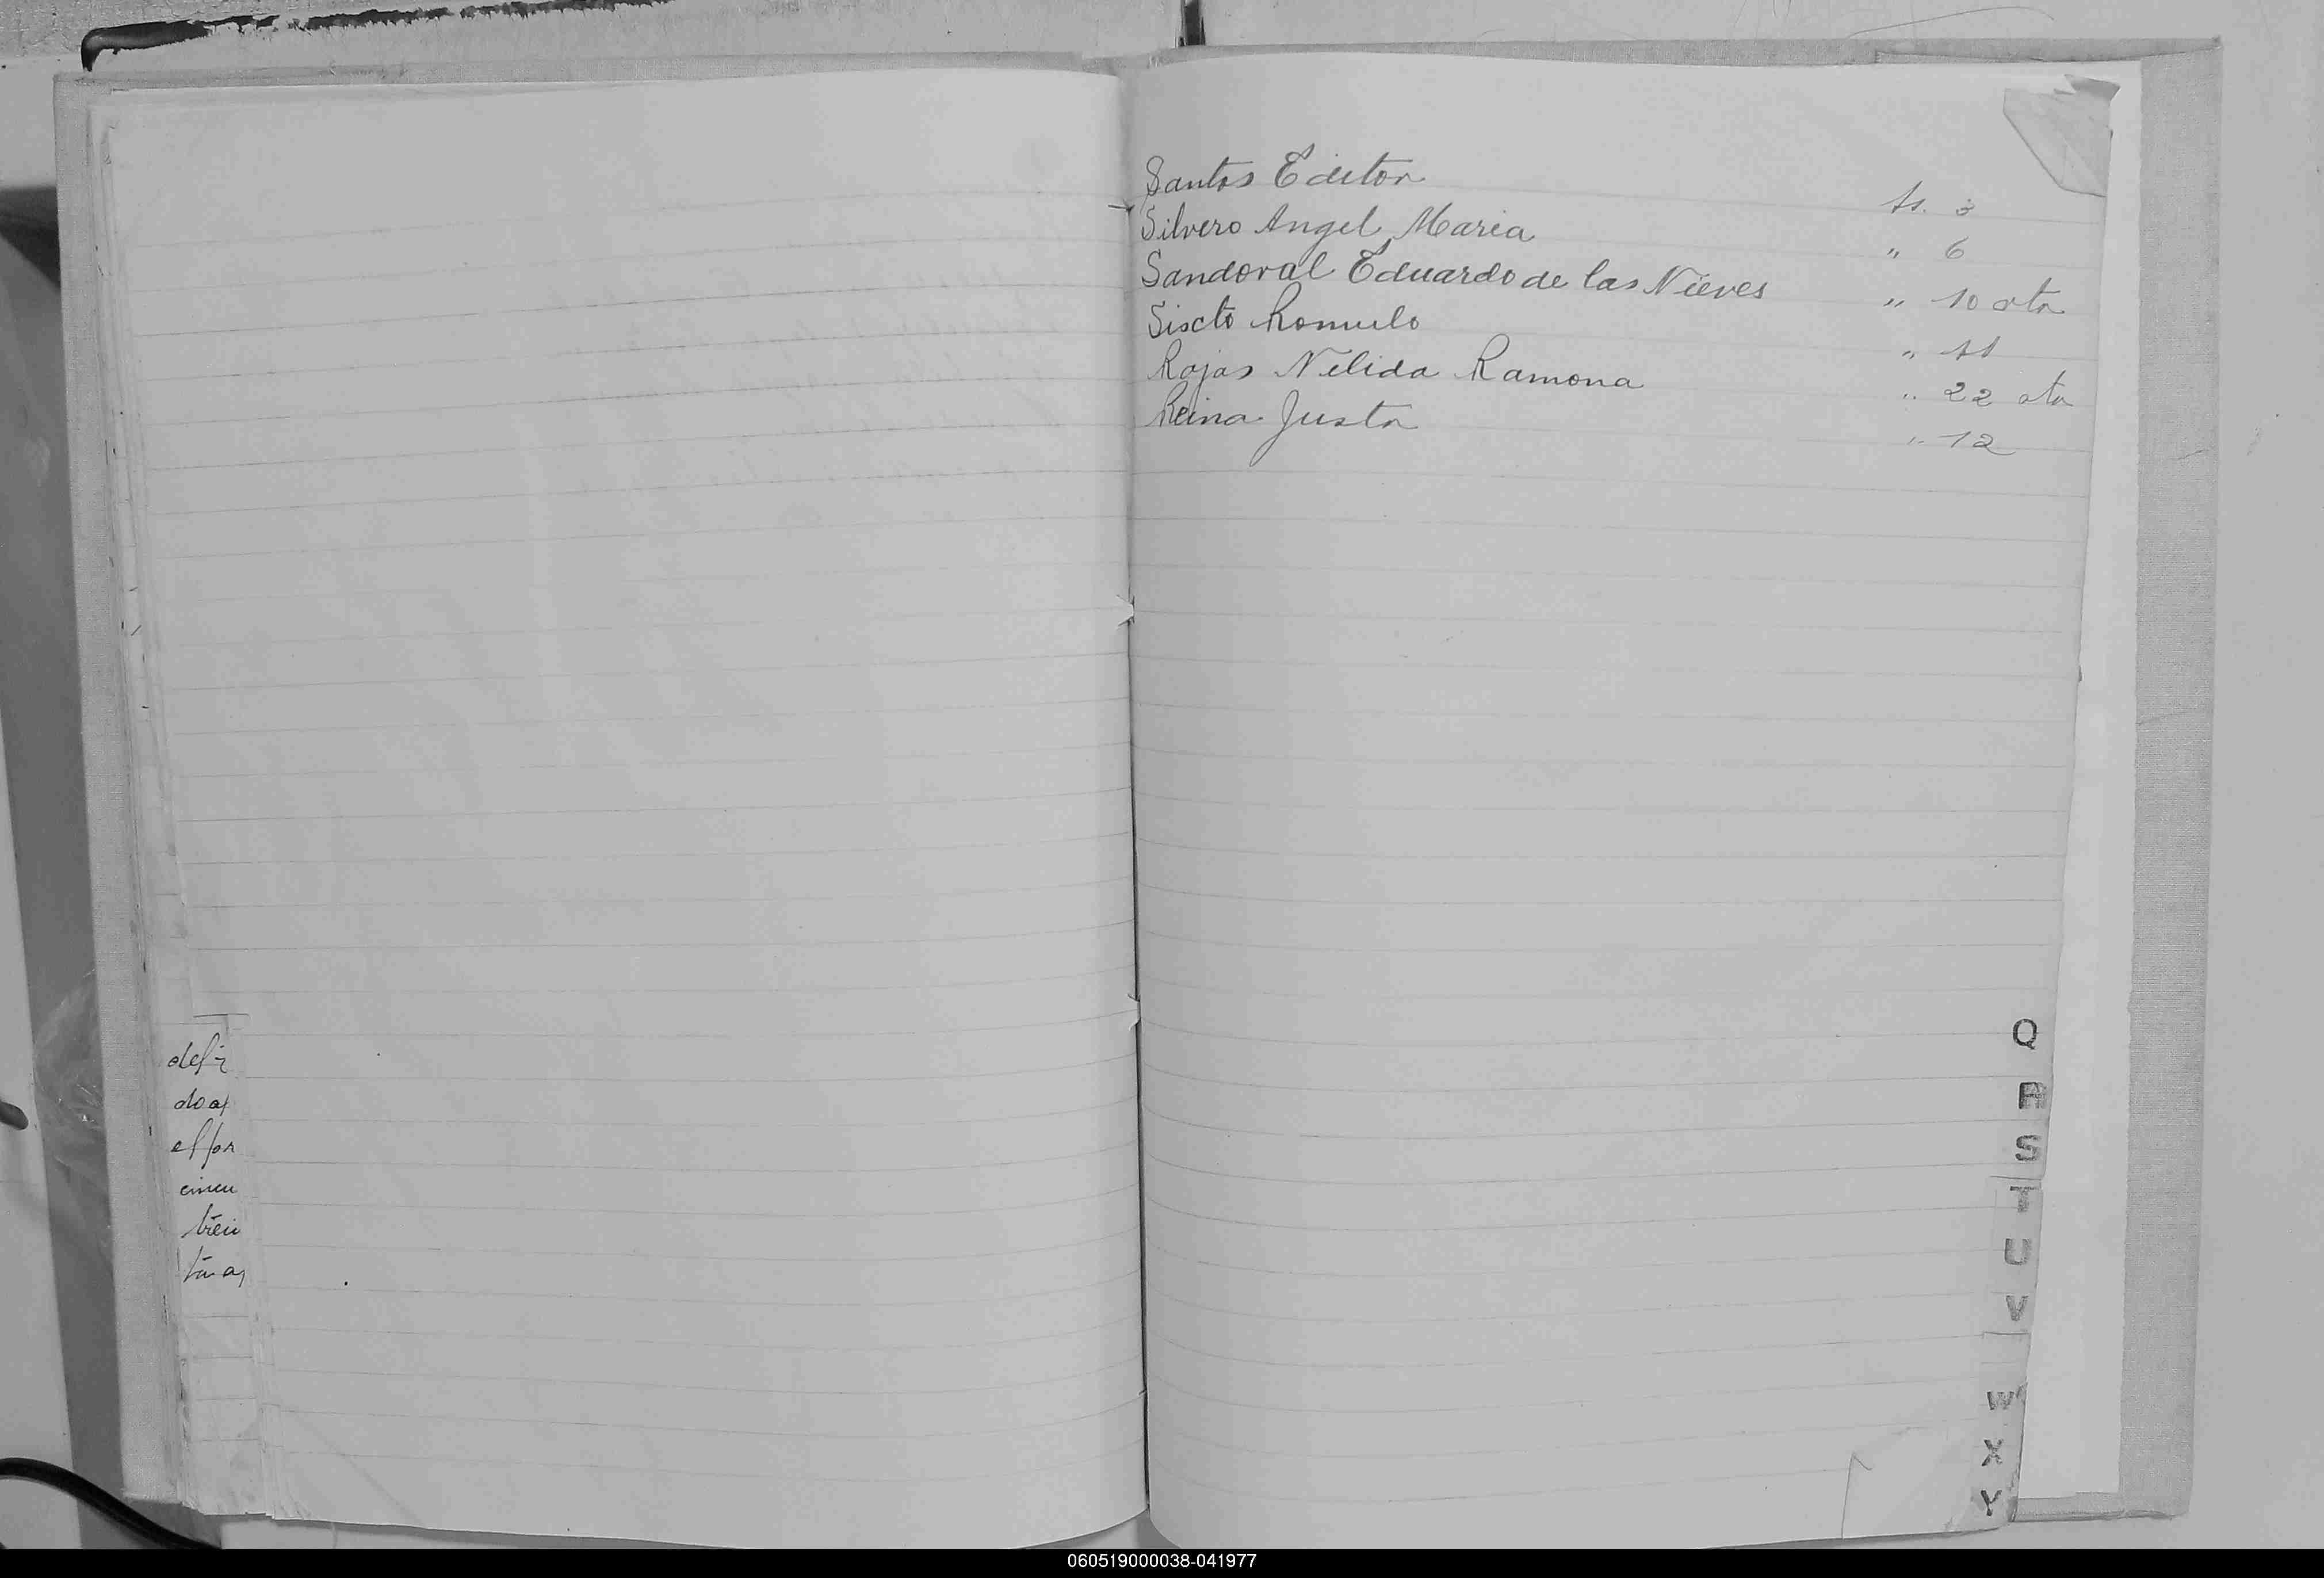 Santos Editor
Silvero Angel Maria
Sandoval Eduardo de las Nieves
Siscto Romulo
Rojas Nelida Ramona
Reina Justa
fs. 3
" 6
" 10 vta
" 11
" 22 vta
" 12
Q
R
S
T
U
V
W
X
Y
060519000038-041977